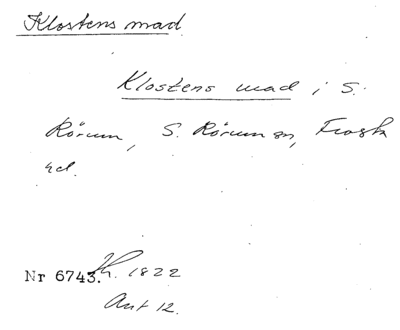 Klostens mad
Klostens mad i S.
Rörum, S. Rörum sn, Frosta
hd.
Nr 6743. Kr. 1822
Avt 12.